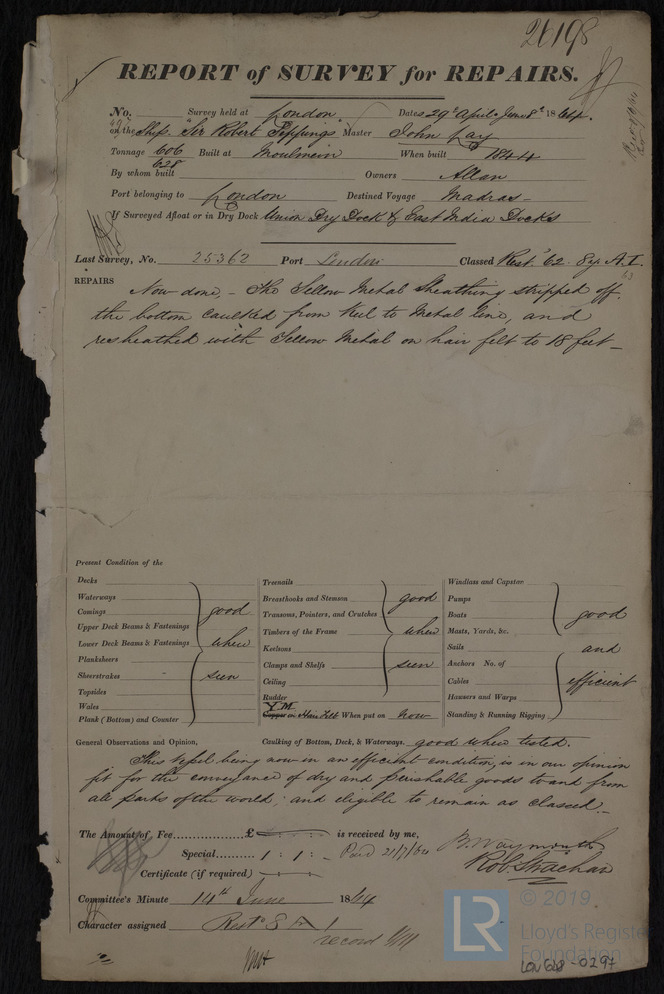 26198
REPORT of SURVEY for REPAIRS.
No. Survey held at London Dates 29th April & June 8th 1864.
on the Ship "Sir Robert Seppings" Master John Lay
Tonnage 606 Built at Moulmein When built 1844
628
By whom built Owners Allan
Port belonging to London Destined Voyage Madras
If Surveyed Afloat or in Dry Dock Union Dry Dock & East India Docks
Last Survey, No. 25362 Port London Classed Rest. '62. 8 yr A.1.
63
REPAIRS
Now done, - The Yellow Metal Sheathing stripped off.
the bottom caulked from Keel to Metal line, and
resheathed with Yellow Metal on hair felt to 18 feet
Present Condition of the
Decks
Waterways
Comings
Upper Deck Beams & Fastenings
Lower Deck Beams & Fastenings
Planksheers
Sheerstrakes
Topsides
Wales
Plank (Bottom) and Counter
good
when
seen
Treenails
Breasthooks and Stemson
Transoms, Pointers, and Crutches
Timbers of the Frame
Keelsons
Clamps and Shelfs
Ceiling
Rudder
good
when
seen
Y.M.
Copper on Hair Felt When put on Now
Windlass and Capstan
Pumps
Boats
Masts, Yards, &c.
Sails
Anchors No. of
Cables
Hawsers and Warps
Standing & Running Rigging
good
and
efficient
General Observations and Opinion, Caulking of Bottom, Deck, & Waterways. good when tested.
This Vessel being now in an efficient condition, is in our opinion
fit for the conveyance of dry and perishable goods to and from
all parts of the world; and eligible to remain as classed.
The Amount of Fee £ is received by me,
Special 1 : 1 : - Paid 21/7/64 B. Waymouth
Certificate (if required) Rob. Strachan
Committee's Minute 14th June 1864
Character assigned Restd 8 A 1
record YM
© 2019
LR
Lloyd's Register
Foundation
LON 618-0297